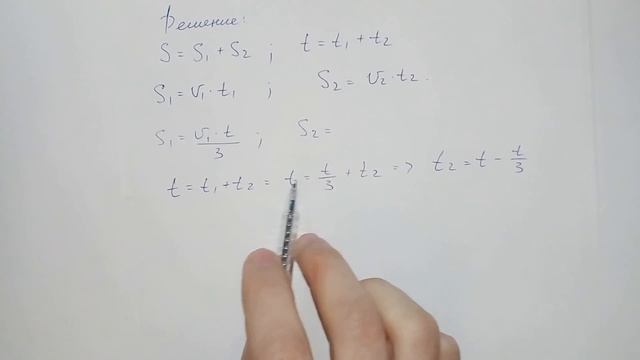 Решение:
S = S₁ + S₂ ; t = t₁ + t₂
S₁ = υ₁·t₁ ; S₂ = υ₂·t₂.
S₁ = υ₁·t/3 ; S₂ =
t = t₁ + t₂ = t = t/3 + t₂ => t₂ = t - t/3